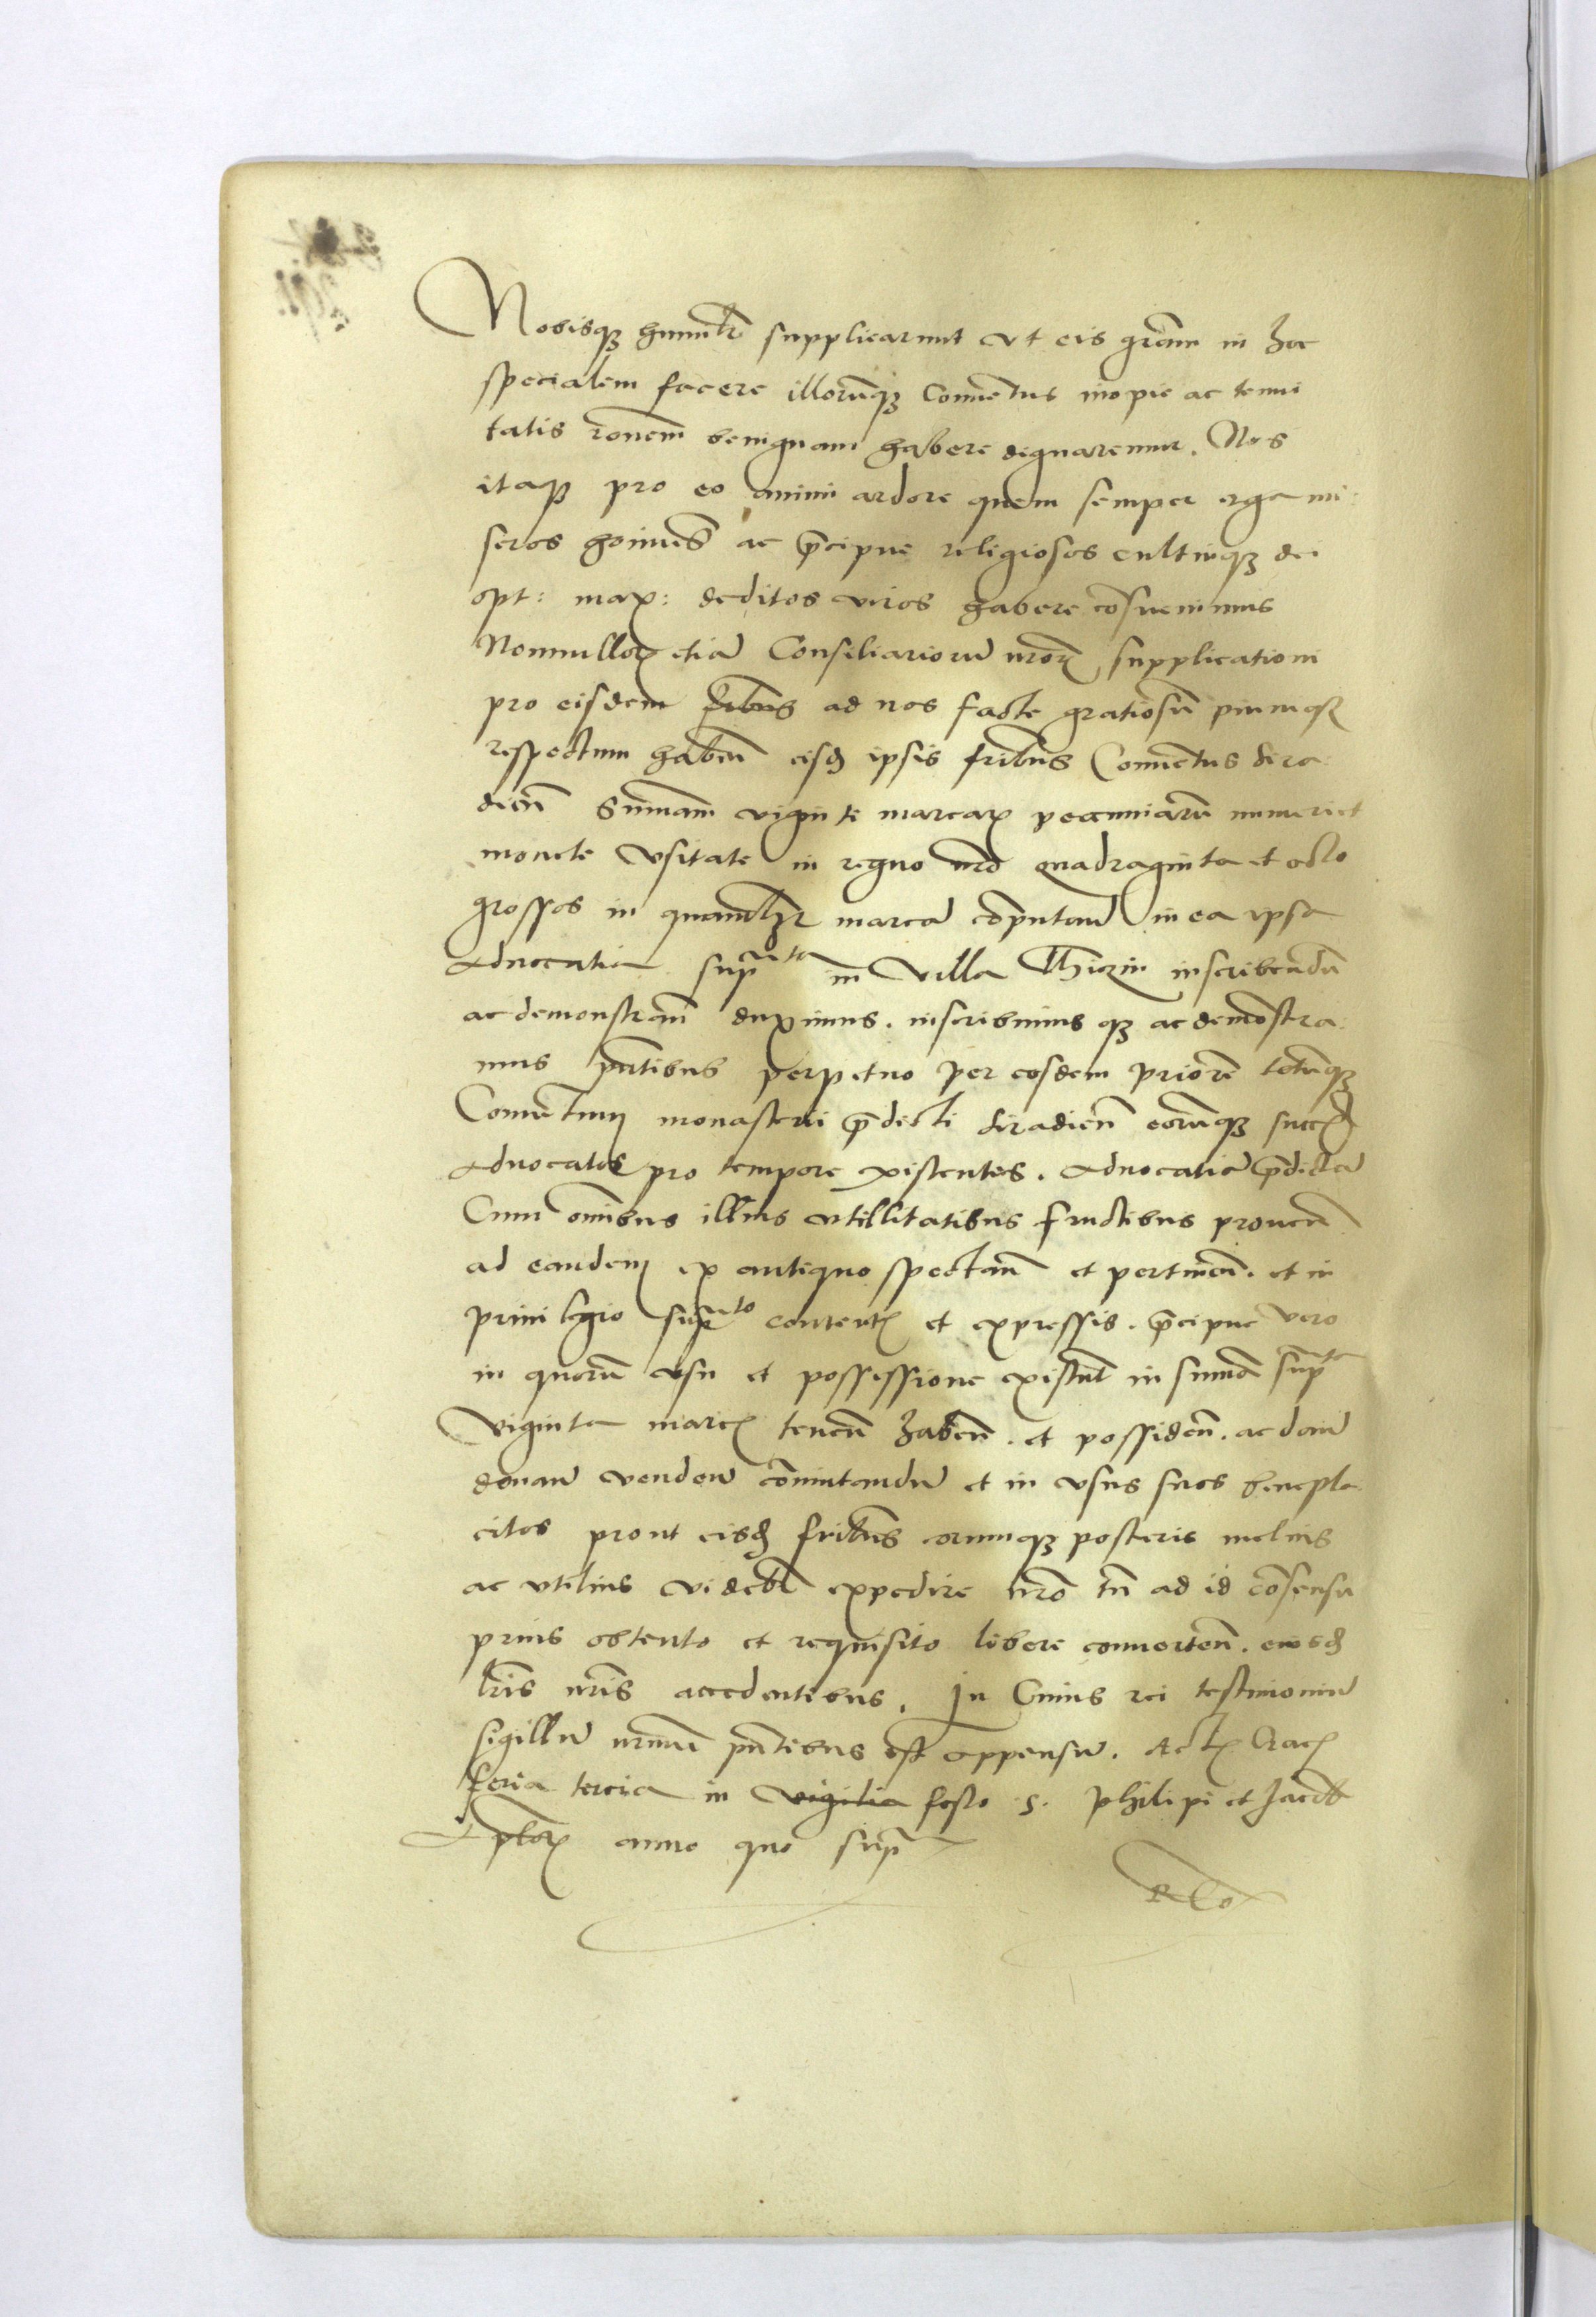 Nobisq3 humilr supplicarunt ut eis gram in hac
specialem facere illorumq3 Conventus inopie ac tenui
tatis ronem benignam habere dignaremur. Nos
itaq3 pro eo animi ardore quem semper erga mi:
seros hoines ac precipue religiosos cultuiq3 dei
opt: max: deditos viros habere cosuevimus
Nonnullor etia Consiliarioru nror supplicationi
pro eisdem fribus ad nos facte gratiosu piumq3
respectum haben eisd ipsis fribus Conventus Sira
dien Summam viginti marcar pecuniarum numeri et
monete Usitate in regno nro quadraginta et octo
grossos in quamlibet marca computan in ea ipsa
Advocatia supta in Villa inscribendu
ac demonstran duximus. inscribimusq3 ac demostra
mus pntibus perpetuo per eosdem priore totumq3
Conventum monasterii predicti Siradien eorumq3 succ
Advocatos pro tempore existentes. Advocatia predicta
Cum omibus illius utillitatibus fructibus proven
ad eandem ex antiquo spectan et pertinen. et in
privilegio supto content et expressis. precipue vero
in quorum usu et possessione existunt in summa supta
Viginta marc tenen haben. et possiden. ac dan
donan venden comutandu et in usus suos benepla
citos prout eisd fribus eorumq3 posteris melius
ac utilius videbr expedire nro tn ad id cosensu
prius obtento et requisito libere converten. eiusd
lris nris accedentibus. In Cuius rei testimoniu
sigillu nrum pntibus est appensu. Act Crac
feria tercia in vigilia festo s. Philipi et Jacob
Aplor anno quo supra